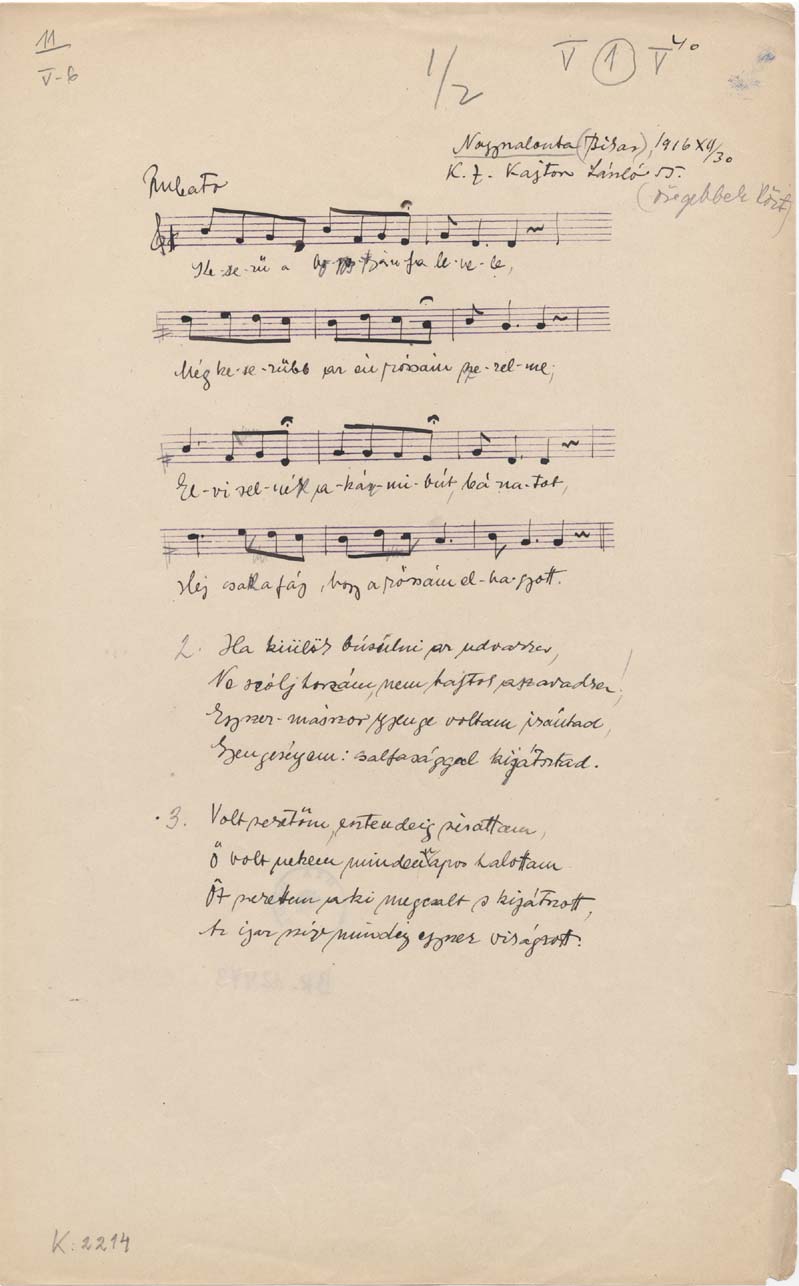 11
V-b
1/2
V 1 V 40
Nagyszalonta (Bihar), 1916 XII/30
K. Z. Kajtor László 55.
(öregebbek közt)
Rubato
Ke-se-rű a fa le-ve-le,
Még ke-se-rűbb az én rózsám sze-rel-me;
El-vi-sel-nék a-kár-mi-bút, bá-na-tot,
Hej csak a fáj, hogy a rózsám el-ha-gyott.
2. Ha kiülök búsúlni az udvarra,
Ne szólj hozzám, nem hajtok a szavadra;
Egyszer-másszor gyenge voltam irántad,
Gyengeségem: csalfasággal kijátsztad.
3. Volt szeretőm, esztendeig sirattam,
Ő volt nekem mindennapos halottam
Őt szerettem a ki megcsalt s kijátszott,
Az igaz szív mindég egyszer virágzott.
K: 2214